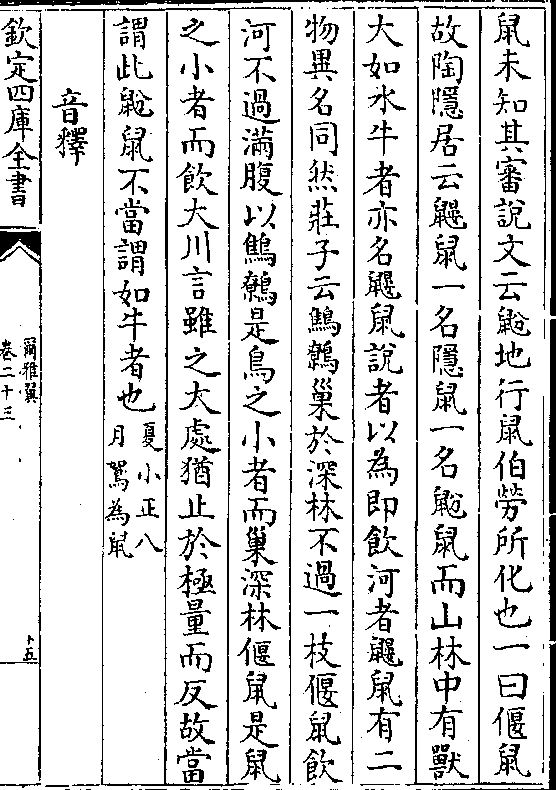 鼠未知其審說文云鼢地行鼠伯勞所化也一曰偃鼠
故陶隱居云鼴鼠一名隱鼠一名鼢鼠而山林中有獸
大如水牛者亦名鼴鼠說者以為即飲河者鼴鼠有二
物異名同然莊子云鷦鷯巢於深林不過一枝偃鼠飲
河不過滿腹以鷦鷯是鳥之小者而巢深林偃鼠是鼠
之小者而飲大川言雖之大處猶止於極量而反故當
謂此鼢鼠不當謂如牛者也夏小正八
月鴽為鼠
音釋
欽定四庫全書
爾雅翼
卷二十三
十五